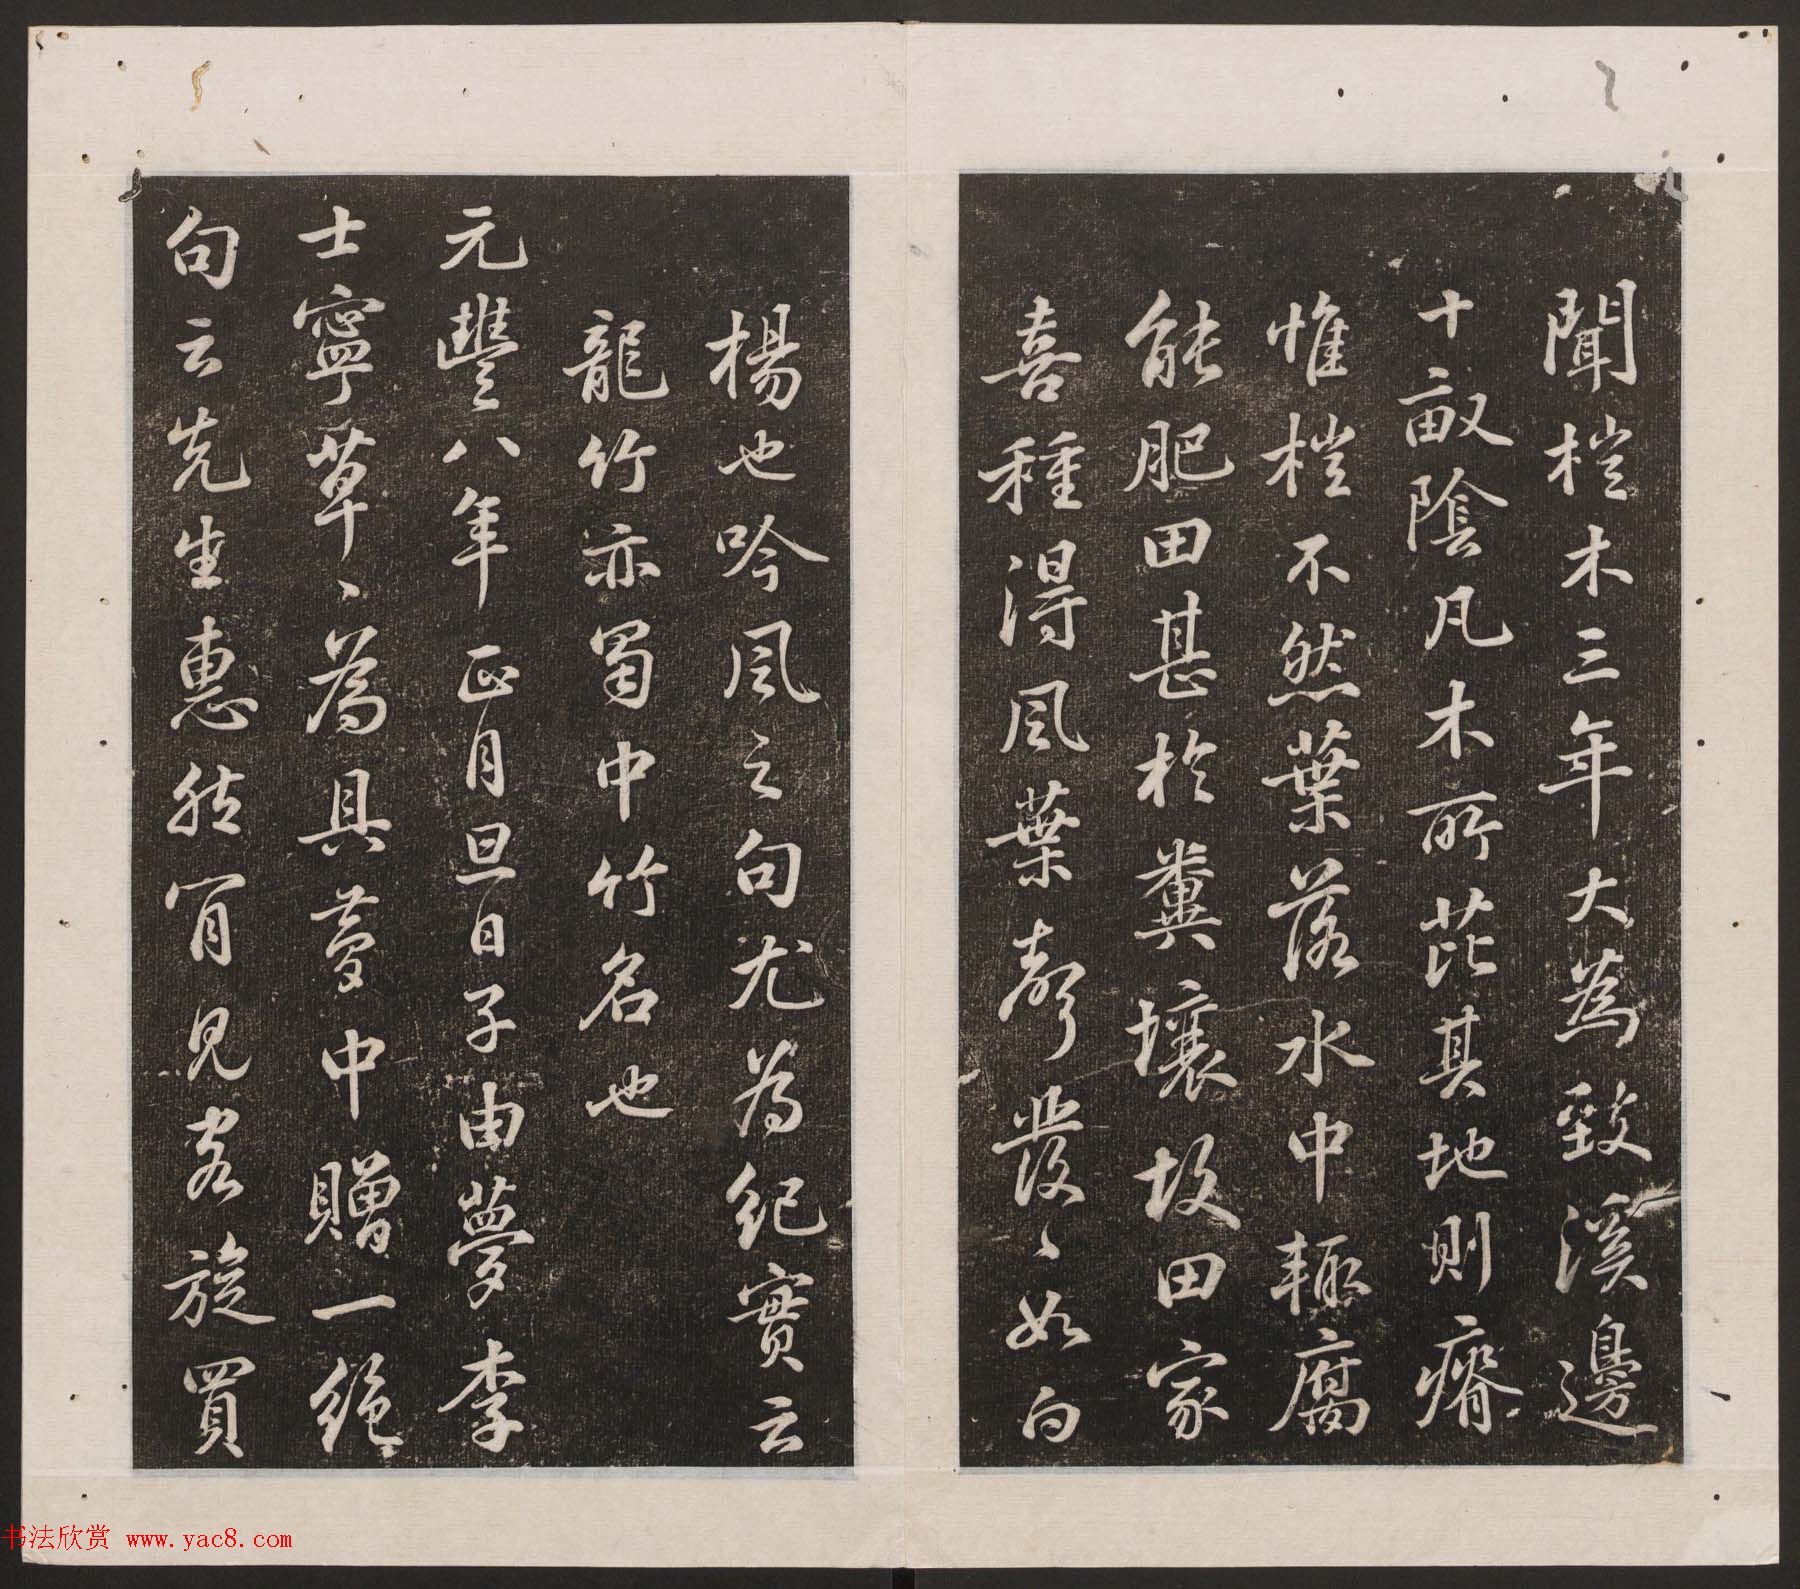 聞榿木三年大為致溪邊
十畝陰凡木所芘其地則瘠
惟榿不然葉落水中輒腐
能肥田甚於糞壤故田家
喜種得風葉聲發〻如白
楊也吟風之句尤為紀實云
龍竹亦蜀中竹名也
元豐八年正月旦日子由夢李
士寧草〻為具夢中贈一絕
句云先生惠然肯見客旋買
书法欣赏 www.yac8.com